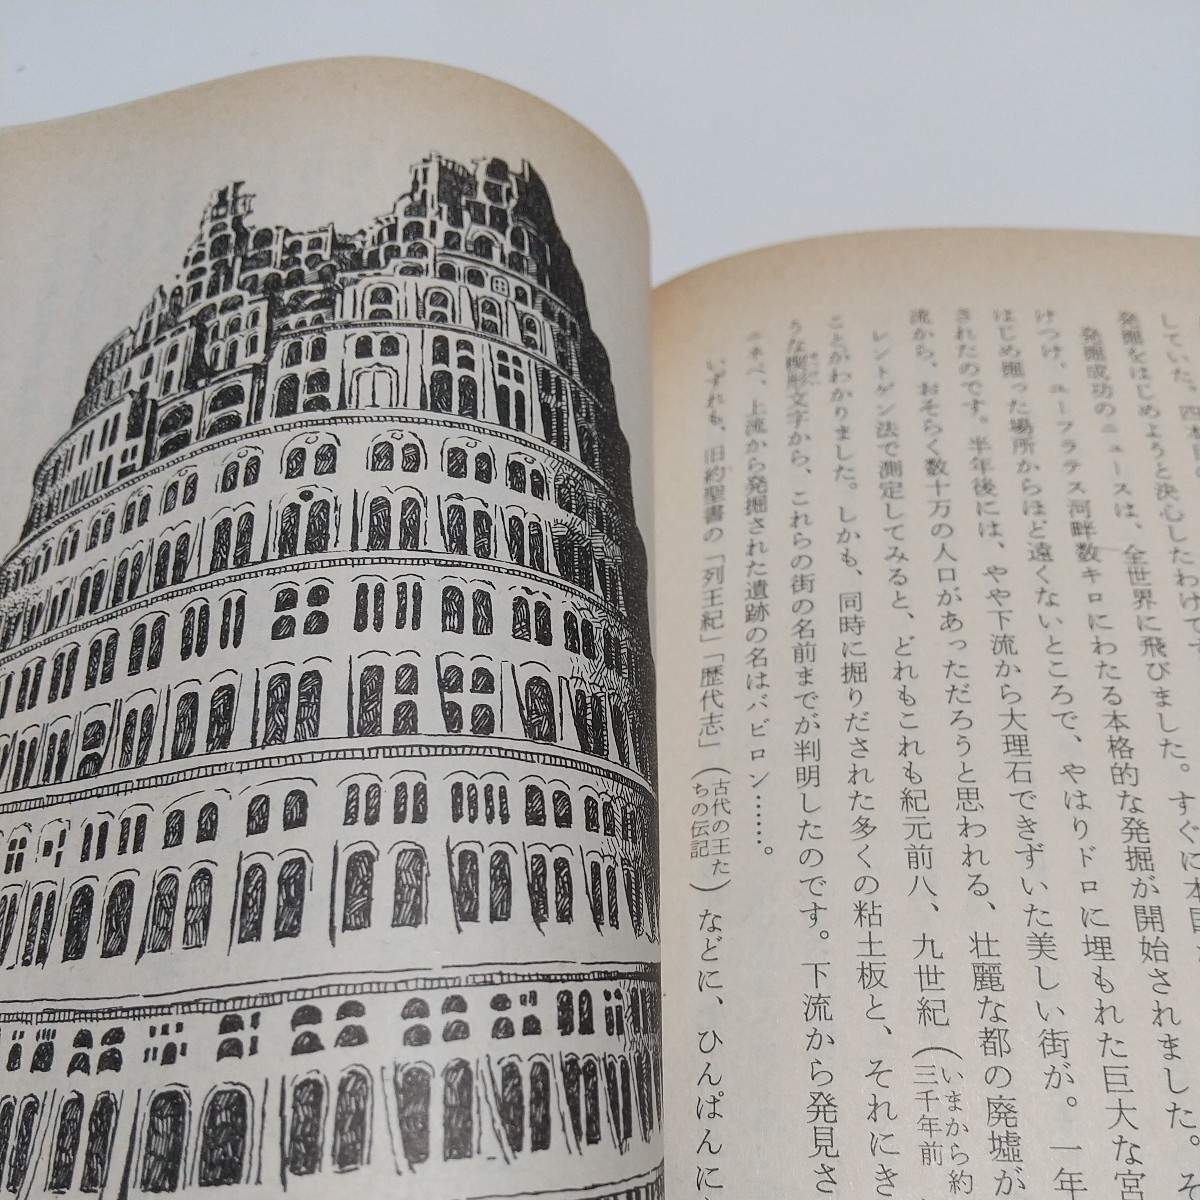 していた。四本
発掘をはじめようと決心したわけで
発掘成功のニュースは、全世界に飛びました。すぐに本
けつけ、ユーフラテス河畔数キロにわたる本格的な発掘が開始されました。そ
はじめ掘った場所からほど遠くないところで、やはりドロに埋もれた巨大な宮
されたのです。半年後には、やや下流から大理石できずいた美しい街が。一年
流から、おそらく数十万の人口があっただろうと思われる、壮麗な都の廃墟が
レントゲン法で測定してみると、どれもこれも紀元前八、九世紀（いまから約三千年前
ことがわかりました。しかも、同時に掘りだされた多くの粘土板と、それにき
うな楔形文字から、これらの街の名前までが判明したのです。下流から発見さ
ニネベ、上流から発掘された遺跡の名はバビロン……。
いずれも、旧約聖書の「列王紀」「歴代志」（古代の王たちの伝記）などに、ひんぱんに